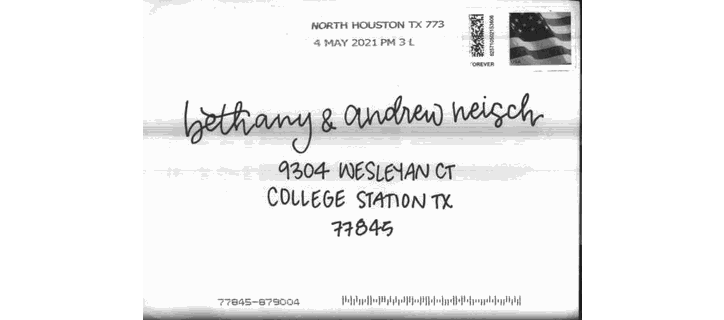 NORTH HOUSTON TX 773
4 MAY 2021 PM 3 L
FOREVER
USA
bethany & andrew neisch
9304 WESLEYAN CT
COLLEGE STATION TX
77845
77845-879004